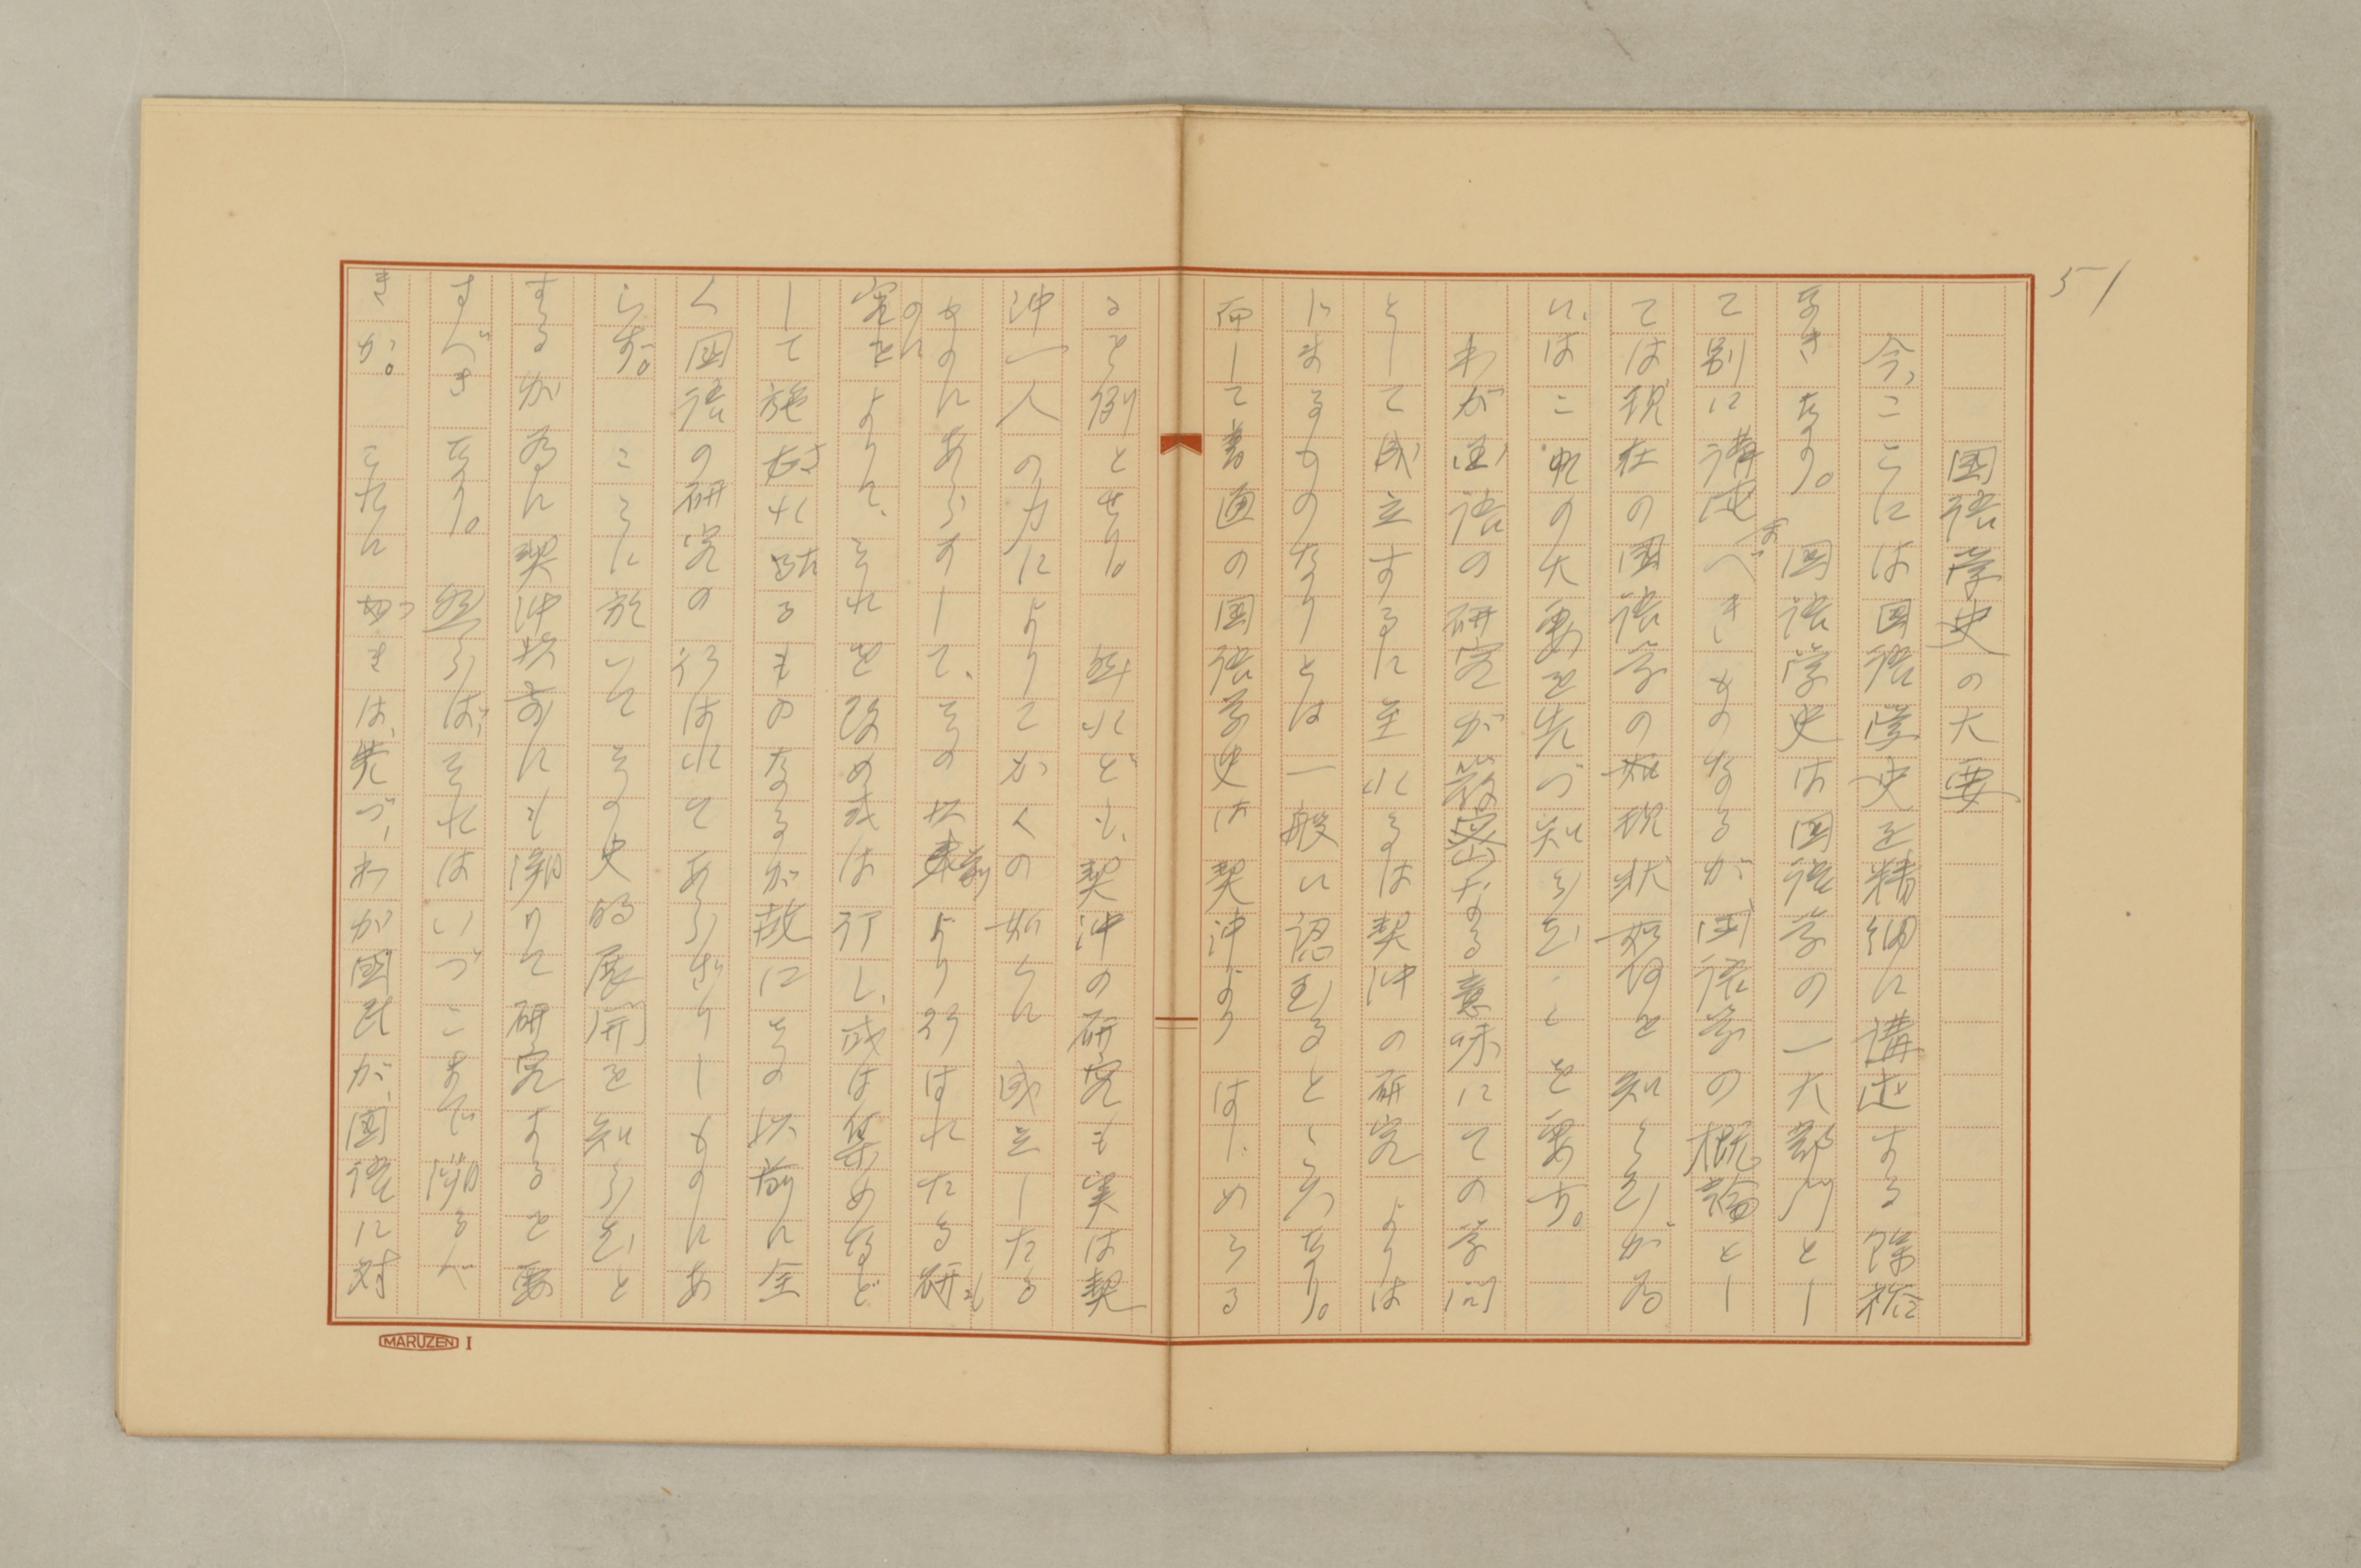 51
国語学史の大要
今、ここには国語学史を精細に講述する余裕
なきなり。国語学史は国語学の一大部門とし
て別に講述すべきものなるが国語学の概論とし
ては現在の国語学の現状如何を知らむが為
に、はこれの大要を先づ知らむことを要す。
わが国語の研究が厳密なる意味にての学問
として成立するに至れるは契沖の研究よりは
じまるものなりとは一般に認むるところなり。
而して普通の国語学史は契沖よりはじめらる
るを例とせり。然れども、契沖の研究も実は契
沖一人の力によりてかくの如くに成立したる
ものにあらずして、その以前より行はれたる研
究のによりて、それを改め或は訂し、或は集めなど
して施されたるものなるが故にその以前に全
く国語の研究の行はれてあらざりしものにあ
らず。ここに於いてその史的展開を知らむと
するが為に契沖以前にも溯りて研究するを要
すべきなり。然らば、それはいづこまで溯るべ
きか。これにつきは、先づ、わが国民が、国語に対
MARUZEN I